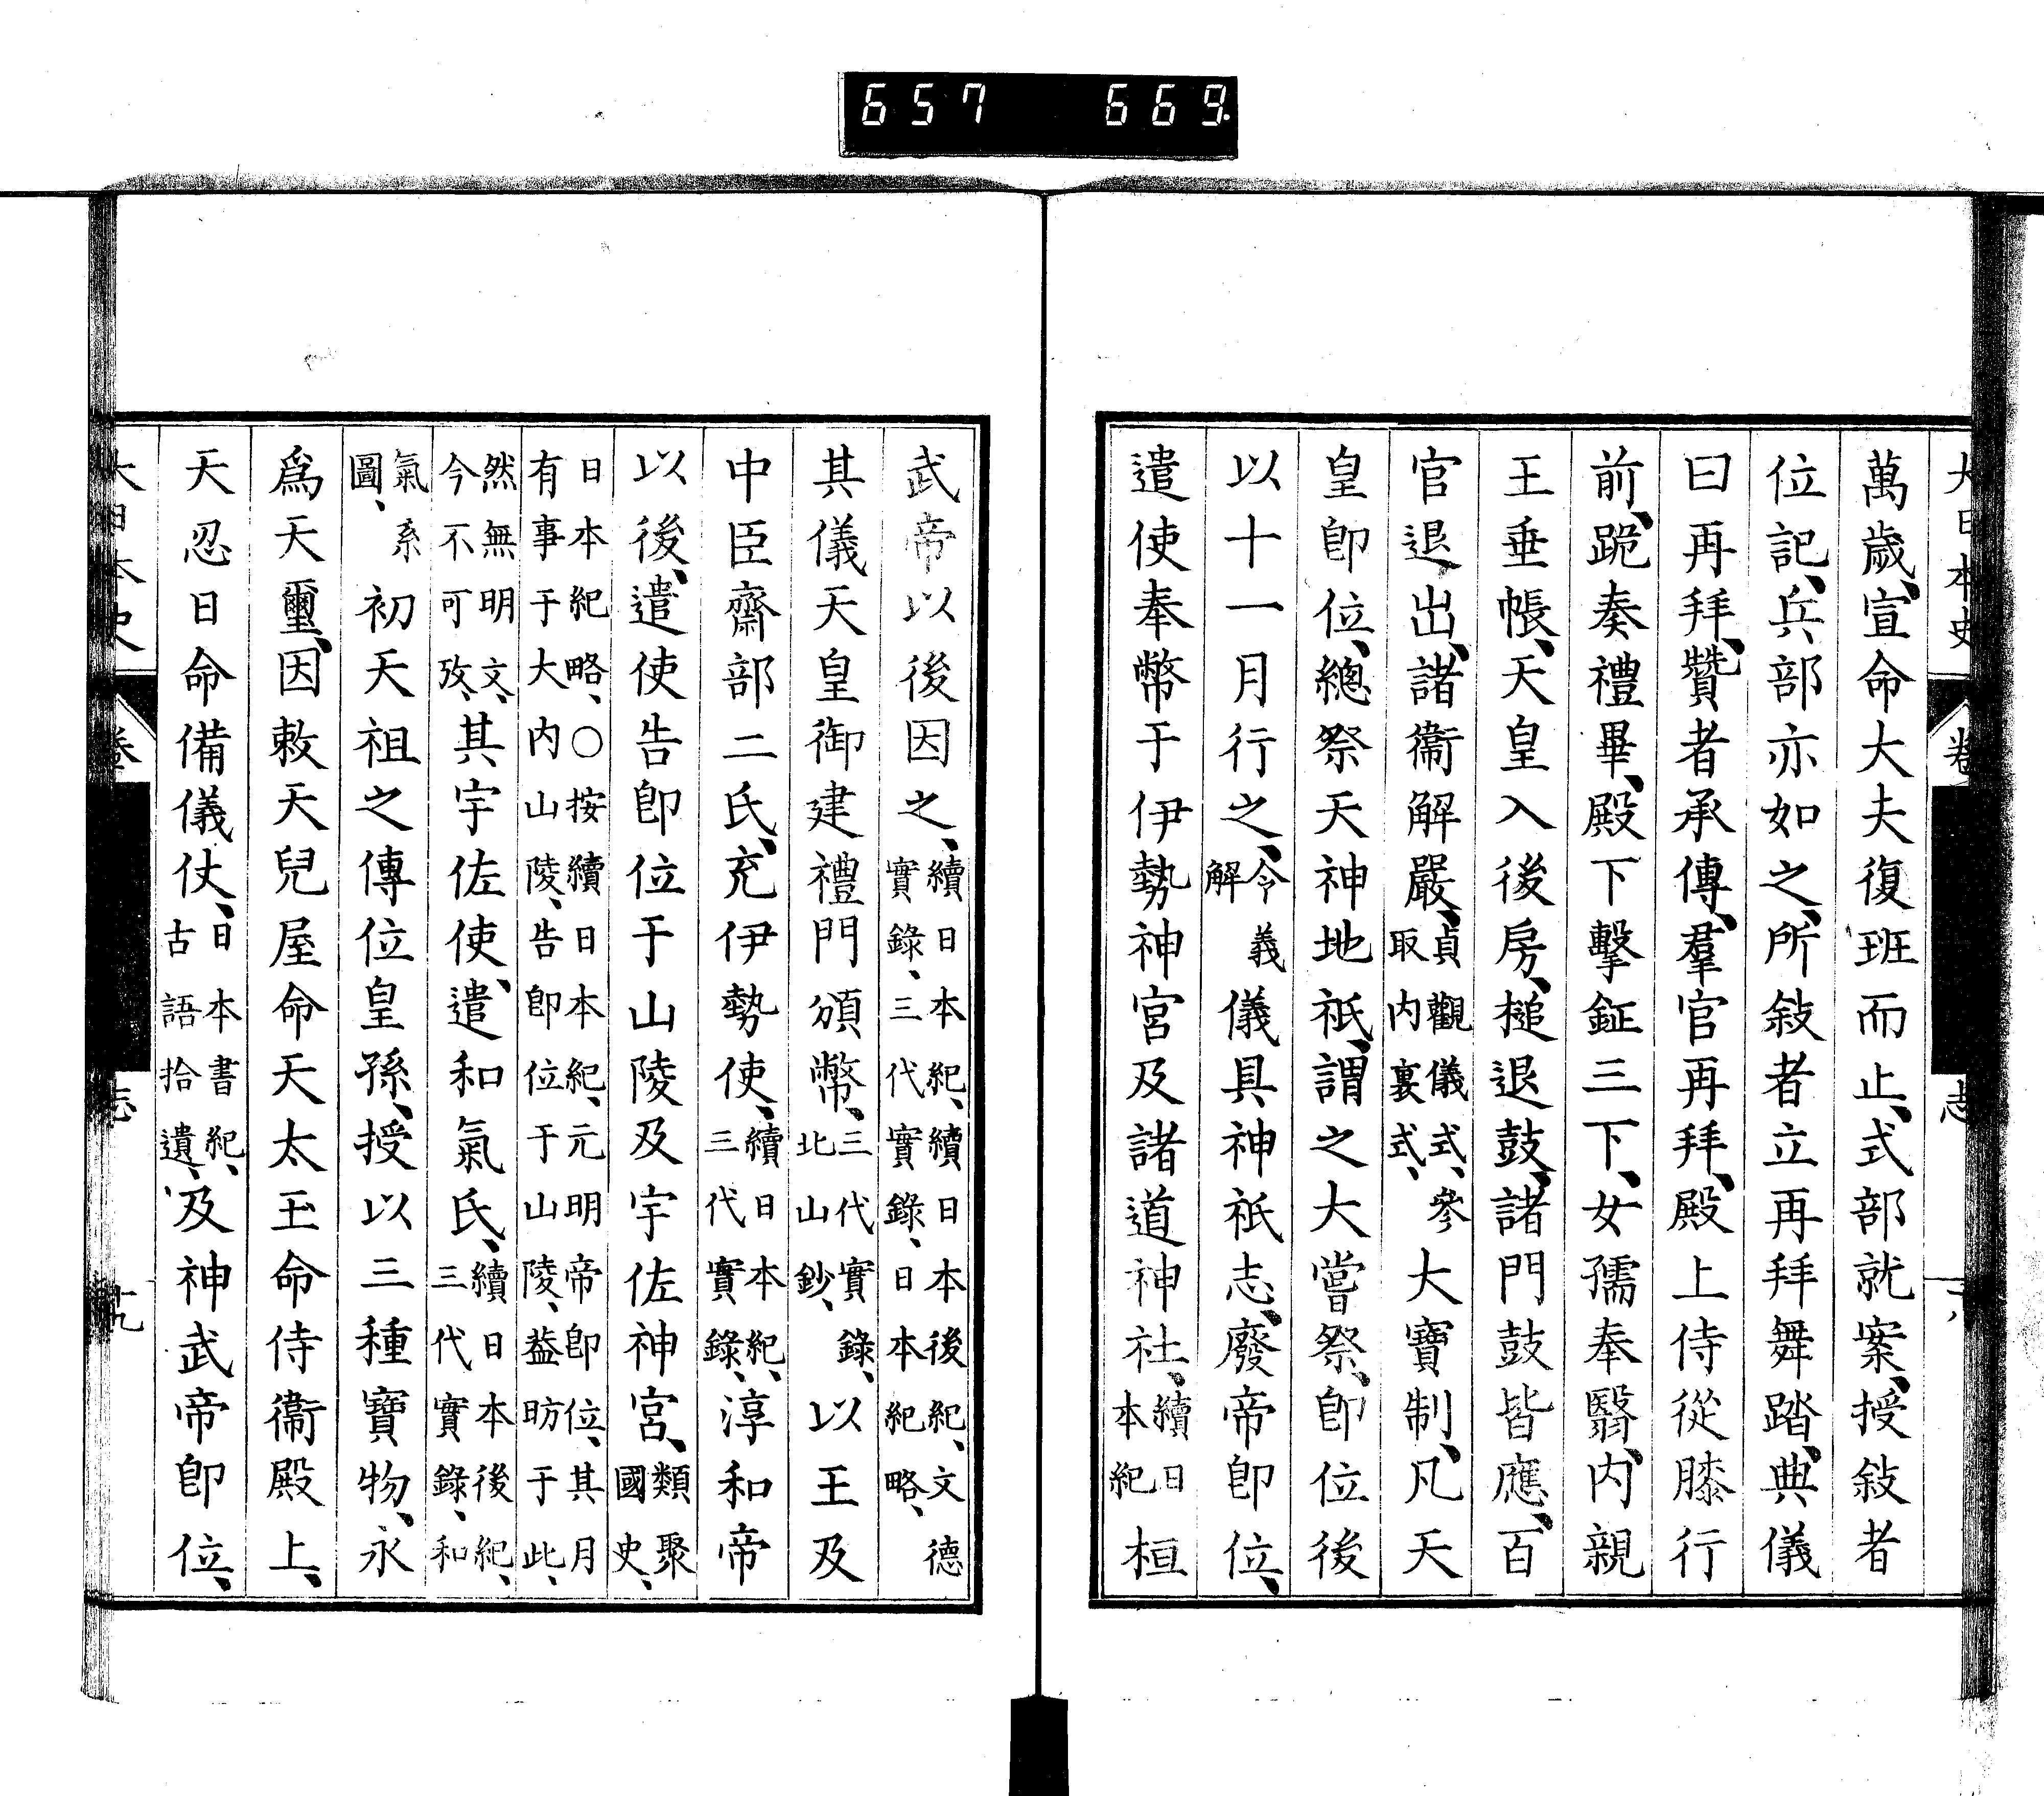 657 669
大日本史 卷 志
萬歲、宣命大夫復班而止、式部就案、授敍者
位記、兵部亦如之、所敍者立再拜舞踏、典儀
曰再拜、贊者承傳、羣官再拜、殿上侍從膝行
前、跪奏禮畢、殿下擊鉦三下、女孺奉翳、內親
王垂帳、天皇入後房、槌退鼓、諸門鼓皆應、百
官退出、諸衞解嚴、貞觀儀式、參取內裏式、大寶制、凡天
皇卽位、總祭天神地祇、謂之大嘗祭、卽位後
以十一月行之、令義解儀具神祇志、廢帝卽位、
遣使奉幣于伊勢神宮及諸道神社、續日本紀桓
武帝以後因之、續日本紀、續日本後紀、文德實錄、三代實錄、日本紀略、
其儀天皇御建禮門頒幣、三代實錄、北山鈔、以王及
中臣齋部二氏、充伊勢使、續日本紀、三代實錄、淳和帝
以後、遣使告卽位于山陵及宇佐神宮、類聚國史、
日本紀略、○按續日本紀、元明帝卽位、其月有事于大內山陵、告卽位于山陵、葢昉于此、
然無明文、今不可攷、其宇佐使、遣和氣氏、續日本後紀、三代實錄、和
氣系圖、初天祖之傳位皇孫、授以三種寶物、永
爲天璽、因敕天兒屋命天太玉命侍衞殿上、
天忍日命備儀仗、日本書紀、古語拾遺、及神武帝卽位、
大日本史 卷 志 十九